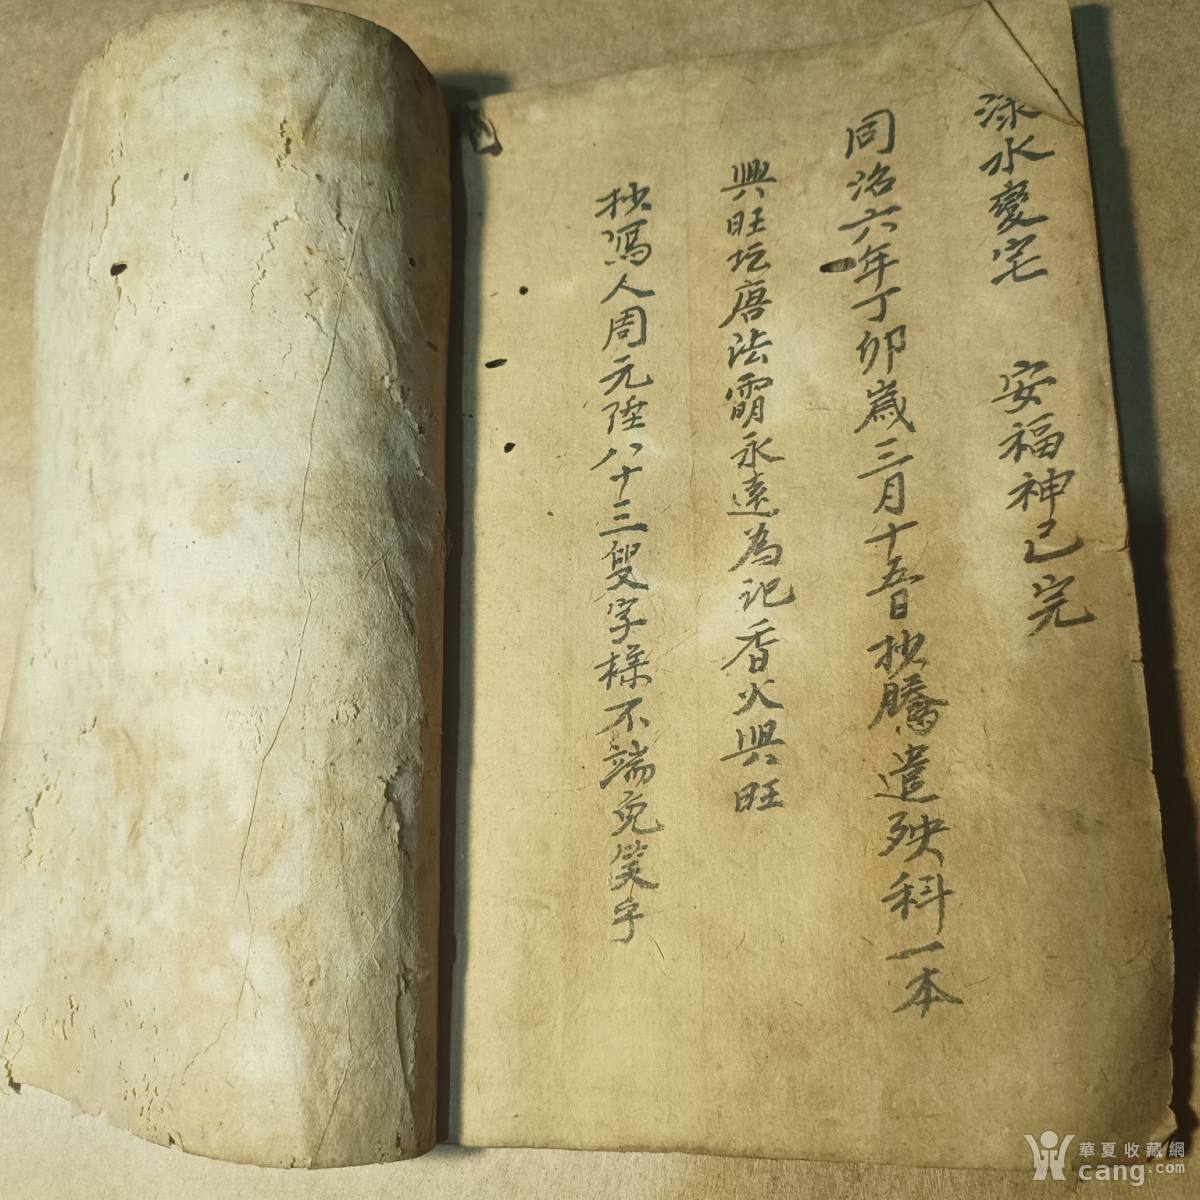 水變宅 安福神已完
同治六年丁卯歲三月十五日抄騰遣殃科一本
興旺坛唐法雷永遠為記香火興旺
抄寫人周元陞八十三叟字樣不端免笑乎
華夏收藏網
cang.com